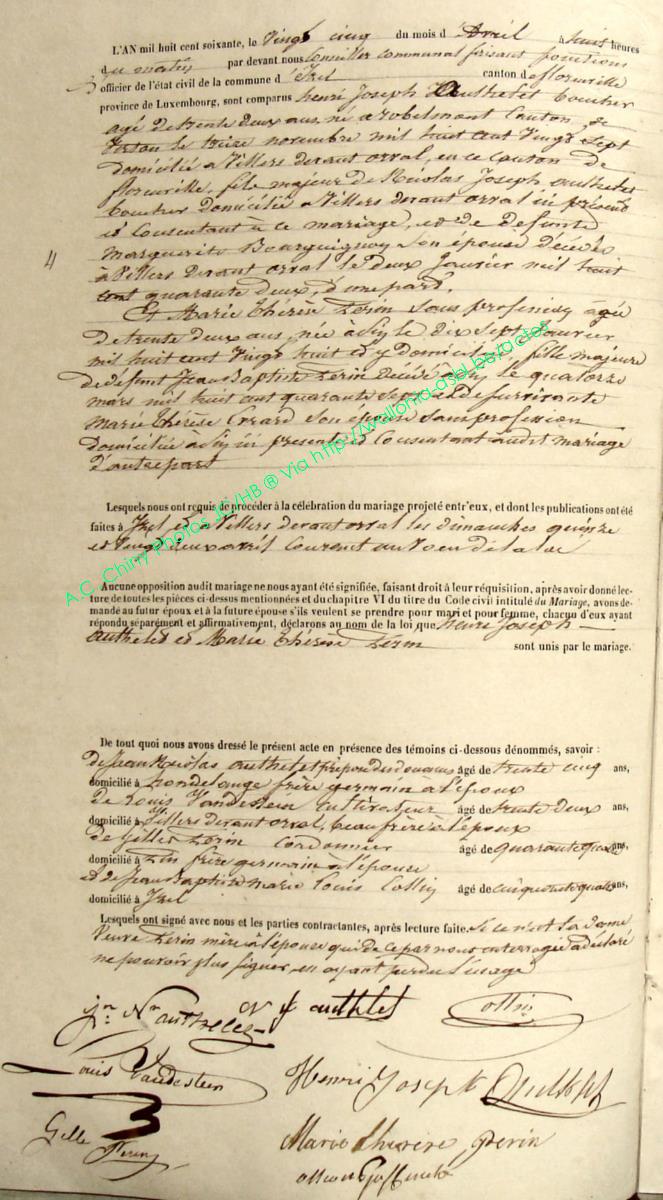 L'AN mil huit cent soixante, le Vingt cinq du mois d'Avril à huit heures
du matin par devant nous Conseiller communal faisant fonctions
officier de l'état civil de la commune d'Izel canton de florenville
province de Luxembourg, sont comparus henri Joseph authelet
agé de trente deux ans, né a robelmont Canton de
Virton le treize novembre mil huit cent Vingt Sept
domicilié a Villers devant orval, en ce Canton de
florenville, fils majeur de Nicolas Joseph authelet
domicilié a Villers devant orval ici présent
et Consentant à ce mariage, et de defunte
marguerite Bourguignon Son épouse décédée
4
à Villers devant orval le deux Janvier mil huit
cent quarante deux, d'une part.
Et Marie Thérèse Perin Sans profession agée
de trente deux ans, née à le dix Sept
mil huit cent Vingt huit et y domiciliée, fille majeure
de defunt Jean Baptiste Perin décédé le quatorze
mars mil huit cent quarante Sept et de Survivante
Marie Thérèse Son épouse Sans profession
domiciliée ici présente et Consentant audit mariage
d'autre part
Lesquels nous ont requis de procéder à la célébration du mariage projeté entr'eux, et dont les publications ont été
faites à Izel et a Villers devant orval les dimanches quinze
et Vingt deux avril Courant au Voeu de la loi
Aucune opposition audit mariage ne nous ayant été signifiée, faisant droit à leur réquisition, après avoir donné lec-
ture de toutes les pièces ci-dessus mentionnées et du chapitre VI du titre du Code civil intitulé du Mariage, avons de-
mandé au futur époux et à la future épouse s'ils veulent se prendre pour mari et pour femme, chacun d'eux ayant
répondu séparément et affirmativement, déclarons au nom de la loi que henri Joseph
authelet et Marie Thérèse Perin sont unis par le mariage.
De tout quoi nous avons dressé le présent acte en présence des témoins ci-dessous dénommés, savoir :
de Jean Nicolas authelet préposé des douanes âgé de trente cinq ans,
domicilié à hondelange frère germain à l'époux
de Louis Vandestein Cultivateur âgé de trente deux ans,
domicilié à Villers devant orval, beau frère à l'époux
de Gilles Perin Cordonnier âgé de quarante quatre ans,
domicilié à frère germain à l'épouse
et de Jean Baptiste marie Louis Collin âgé de cinquante quatre ans,
domicilié à Izel
Lesquels ont signé avec nous et les parties contractantes, après lecture faite. Si ce n'est la dame
Veuve Perin mère à l'épouse qui de ce par nous interrogée a déclaré
ne pouvoir plus Signer en ayant perdu l'usage
jn. Nas authelet N j authelet Collin
Louis Vandestein Henri Joseph Authelet
Gille Perin Marie Therese Perin
A.C. Chiny Photos JC/HB ® Via http://wallonia-asbl.be/actes